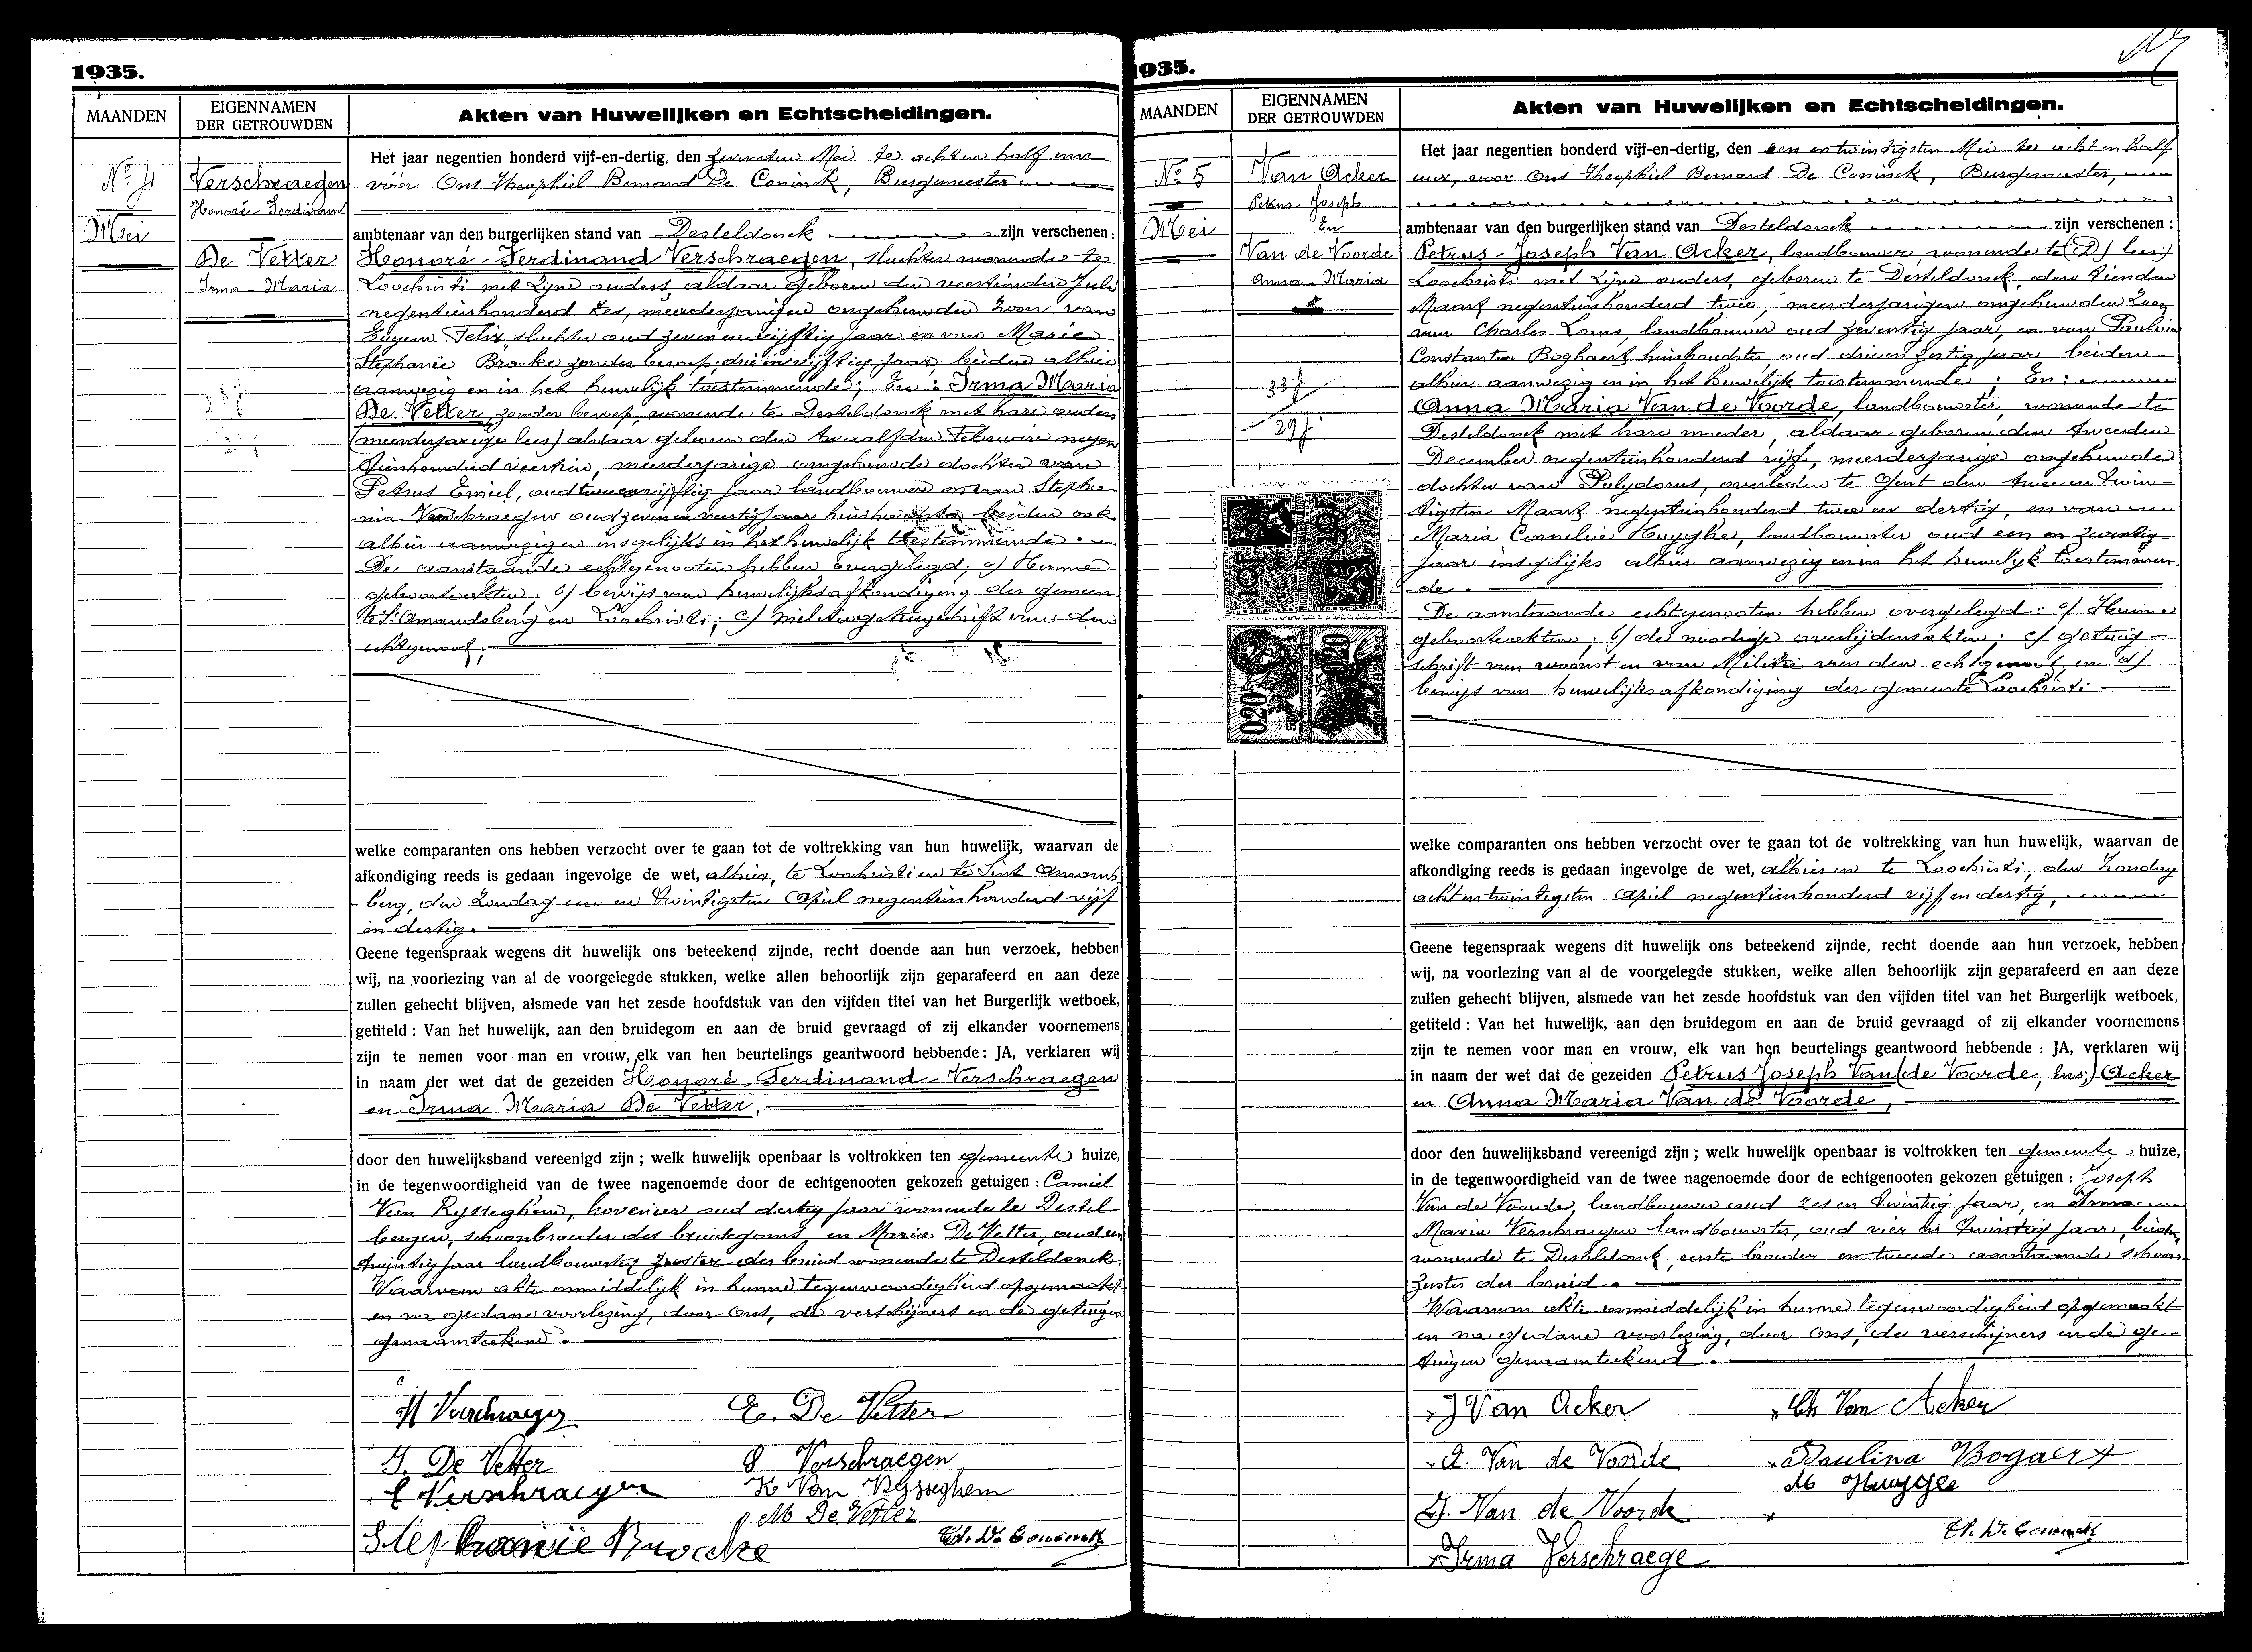 1935.
MAANDEN
EIGENNAMEN
DER GETROUWDEN
Akten van Huwelijken en Echtscheidingen.
No 4
Mei
Verschraegen
Honoré-Ferdinand
De Vetter
Irma-Maria
Het jaar negentien honderd vijf-en-dertig, den zevenden Mei te achten half ure
vóór Ons Theophiel Bernard De Coninck, Burgemeester
ambtenaar van den burgerlijken stand van Desteldonck zijn verschenen:
Honoré-Ferdinand Verschraegen, slachter wonende te
Loochristi met zijne ouders, aldaar geboren den veertienden Juli
negentienhonderd zes, meerderjarigen ongehuwden zoon van
Eugeen Felix, slachter oud zeven en vijftig jaar en van Marie
Stephanie Brocke zonder beroep, drie en vijftig jaar, beiden alhier
aanwezig en in het huwelijk toestemmende; En: Irma Maria
De Vetter, zonder beroep, wonende te Desteldonck met hare ouders
(meerderjarige lees) aldaar geboren den twaalfden Februari negen
tienhonderd veertien, meerderjarige ongehuwde dochter van
Petrus Emiel, oud twee en vijftig jaar landbouwer en van Stepha-
nia Verschraegen oud zeven en veertig jaar huishoudster beiden ook
alhier aanwezig en insgelijks in het huwelijk toestemmende.
De aanstaande echtgenooten hebben overgelegd; a/ Hunne
geboorteakten; b/ bewijs van huwelijksafkondiging der gemeen-
te St Amandsberg en Loochristi; c/ militiegetuigschrift van den
echtgenoot;
welke comparanten ons hebben verzocht over te gaan tot de voltrekking van hun huwelijk, waarvan de
afkondiging reeds is gedaan ingevolge de wet, alhier, te Loochristi en te Sint Amands
berg, den Zondag een en twintigsten April negentienhonderd vijf
en dertig.
Geene tegenspraak wegens dit huwelijk ons beteekend zijnde, recht doende aan hun verzoek, hebben
wij, na voorlezing van al de voorgelegde stukken, welke allen behoorlijk zijn geparafeerd en aan deze
zullen gehecht blijven, alsmede van het zesde hoofdstuk van den vijfden titel van het Burgerlijk wetboek,
getiteld: Van het huwelijk, aan den bruidegom en aan de bruid gevraagd of zij elkander voornemens
zijn te nemen voor man en vrouw, elk van hen beurtelings geantwoord hebbende: JA, verklaren wij
in naam der wet dat de gezeiden Honoré Ferdinand Verschraegen
en Irma Maria De Vetter,
door den huwelijksband vereenigd zijn; welk huwelijk openbaar is voltrokken ten gemeente huize,
in de tegenwoordigheid van de twee nagenoemde door de echtgenooten gekozen getuigen: Camiel
Van Rysseghem, hovenier oud dertig jaar wonende te Destel-
bergen, schoonbroeder des bruidegoms, en Maria De Vetter, oud een
twintig jaar landbouwster zuster der bruid wonende te Desteldonck.
Waarvan akte onmiddelijk in hunne tegenwoordigheid opgemaakt
en na gedane voorlezing, door Ons, de verschijners en de getuigen
genaamteekend.
H Verschraegen
E. De Vetter
I. De Vetter
S Verschraegen
E Verschraegen
K Van Rysseghem
M De Vetter
Stephanie Brocke
Th. De Coninck
1935.
MAANDEN
EIGENNAMEN
DER GETROUWDEN
Akten van Huwelijken en Echtscheidingen.
No 5
Mei
Van Acker
Petrus-Joseph
En
Van de Voorde
Anna-Maria
33 j
29 j
Het jaar negentien honderd vijf-en-dertig, den een en twintigsten Mei te acht en half
uur, voor Ons Theophiel Bernard De Coninck, Burgemeester,
ambtenaar van den burgerlijken stand van Desteldonck zijn verschenen:
Petrus-Joseph Van Acker, landbouwer, wonende te (D) lees:)
Loochristi met zijne ouders, geboren te Desteldonck, den tienden
Maart negentienhonderd twee, meerderjarigen ongehuwden zoon
van Charles Louis, landbouwer oud zeventig jaar, en van Paulina
Constantia Boghaert huishoudster, oud drie en zestig jaar beiden
alhier aanwezig en in het huwelijk toestemmende; En:
Anna Maria Van de Voorde, landbouwster, wonende te
Desteldonck met hare moeder, aldaar geboren den tweeden
December negentienhonderd vijf, meerderjarige ongehuwde
dochter van Polydorus, overleden te Gent den twee en twin-
tigsten Maart negentienhonderd twee en dertig, en van
Maria Cornelia Huyghe, landbouwster oud een en zeventig
jaar insgelijks alhier aanwezig en in het huwelijk toestemmen-
de.
De aanstaande echtgenooten hebben overgelegd: a/ Hunne
geboorteakten; b/ de noodige overlijdensakten; c/ getuig-
schrift van woonst en van Militie van den echtgenoot en d/
bewijs van huwelijksafkondiging der gemeente Loochristi
10F
10F
020
020
welke comparanten ons hebben verzocht over te gaan tot de voltrekking van hun huwelijk, waarvan de
afkondiging reeds is gedaan ingevolge de wet, alhier en te Loochristi, den Zondag
acht en twintigsten April negentienhonderd vijf en dertig,
Geene tegenspraak wegens dit huwelijk ons beteekend zijnde, recht doende aan hun verzoek, hebben
wij, na voorlezing van al de voorgelegde stukken, welke allen behoorlijk zijn geparafeerd en aan deze
zullen gehecht blijven, alsmede van het zesde hoofdstuk van den vijfden titel van het Burgerlijk wetboek,
getiteld: Van het huwelijk, aan den bruidegom en aan de bruid gevraagd of zij elkander voornemens
zijn te nemen voor man en vrouw, elk van hen beurtelings geantwoord hebbende: JA, verklaren wij
in naam der wet dat de gezeiden Petrus Joseph Van (de Voorde, lees;) Acker
en Anna Maria Van de Voorde,
door den huwelijksband vereenigd zijn; welk huwelijk openbaar is voltrokken ten gemeente huize,
in de tegenwoordigheid van de twee nagenoemde door de echtgenooten gekozen getuigen: Joseph
Van de Voorde, landbouwer oud zes en twintig jaar, en Irma
Maria Verschraegen landbouwster, oud vier en twintig jaar, beiden
wonende te Desteldonck, eerste broeder en tweede aanstaande schoon-
zuster der bruid.
Waarvan akte onmiddelijk in hunne tegenwoordigheid opgemaakt
en na gedane voorlezing, door Ons, de verschijners en de ge-
tuigen genaamteekend.
J Van Acker
Ch Van Acker
A. Van de Voorde
Paulina Bogaert
M Huygge
J. Van de Voorde
Th. De Coninck
Irma Verschraege